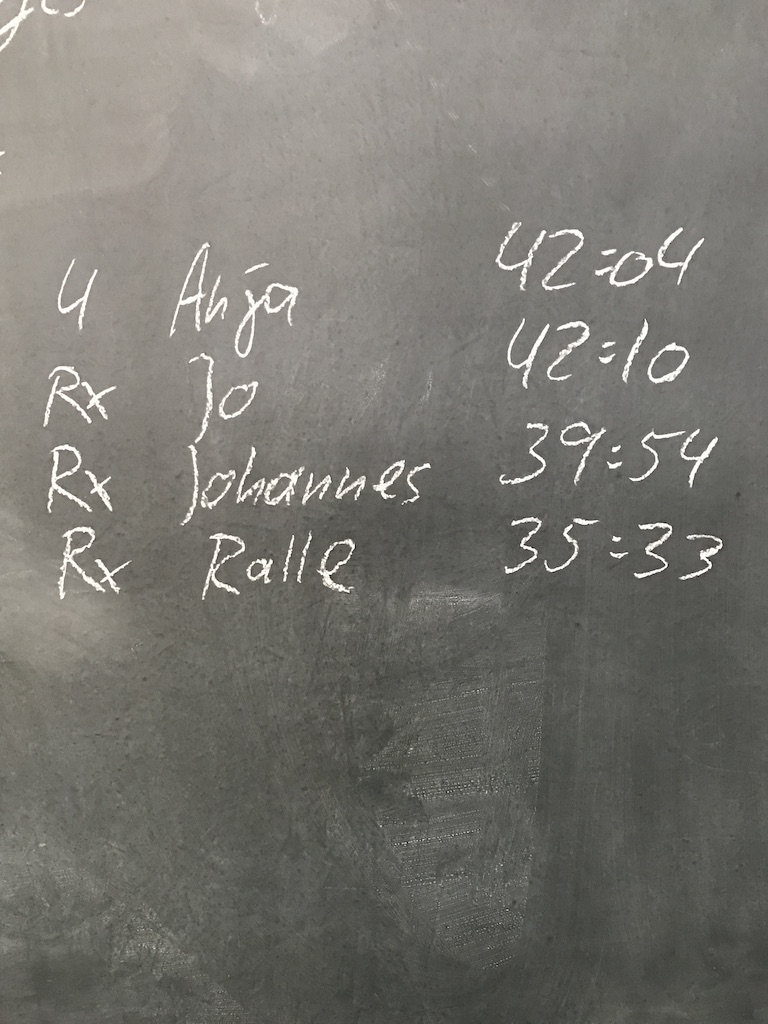 4 Anja 42:04
Rx Jo 42:10
Rx Johannes 39:54
Rx Ralle 35:33